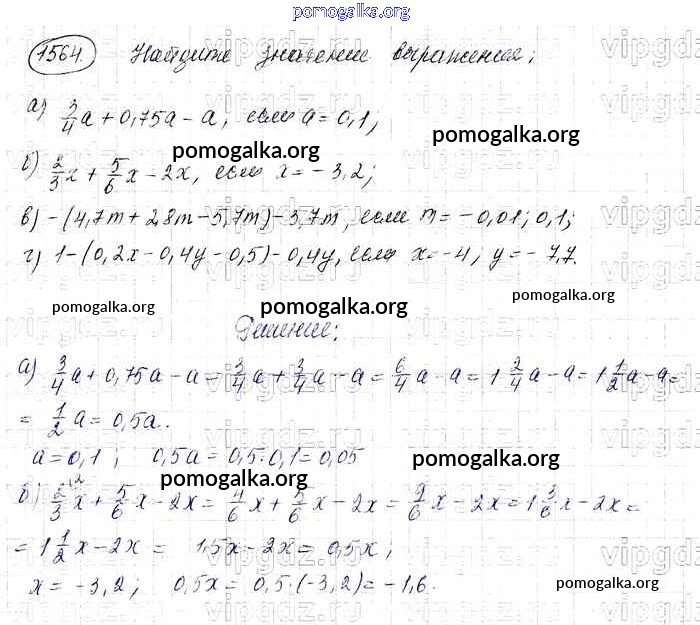 pomogalka.org
1564. Найдите значение выражения:
а) 3/4 a + 0,75a - a, если a = 0,1;
pomogalka.org pomogalka.org
б) 2/3 x + 5/6 x - 2x, если x = - 3,2;
в) - (4,7m + 2,8m - 5,7m) - 3,7m, если m = - 0,01; 0,1;
г) 1 - (0,2x - 0,4y - 0,5) - 0,4y, если x = -4; y = - 7,7.
pomogalka.org pomogalka.org pomogalka.org
Решение:
а) 3/4 a + 0,75a - a = 3/4 a + 3/4 a - a = 6/4 a - a = 1 2/4 a - a = 1 1/2 a - a =
= 1/2 a = 0,5a.
a = 0,1; 0,5a = 0,5·0,1 = 0,05
pomogalka.org pomogalka.org
б) 2/3 x + 5/6 x - 2x = 4/6 x + 5/6 x - 2x = 9/6 x - 2x = 1 3/6 x - 2x =
= 1 1/2 x - 2x = 1,5x - 2x = 0,5x;
x = -3,2; 0,5x = 0,5·(-3,2) = -1,6.
pomogalka.org